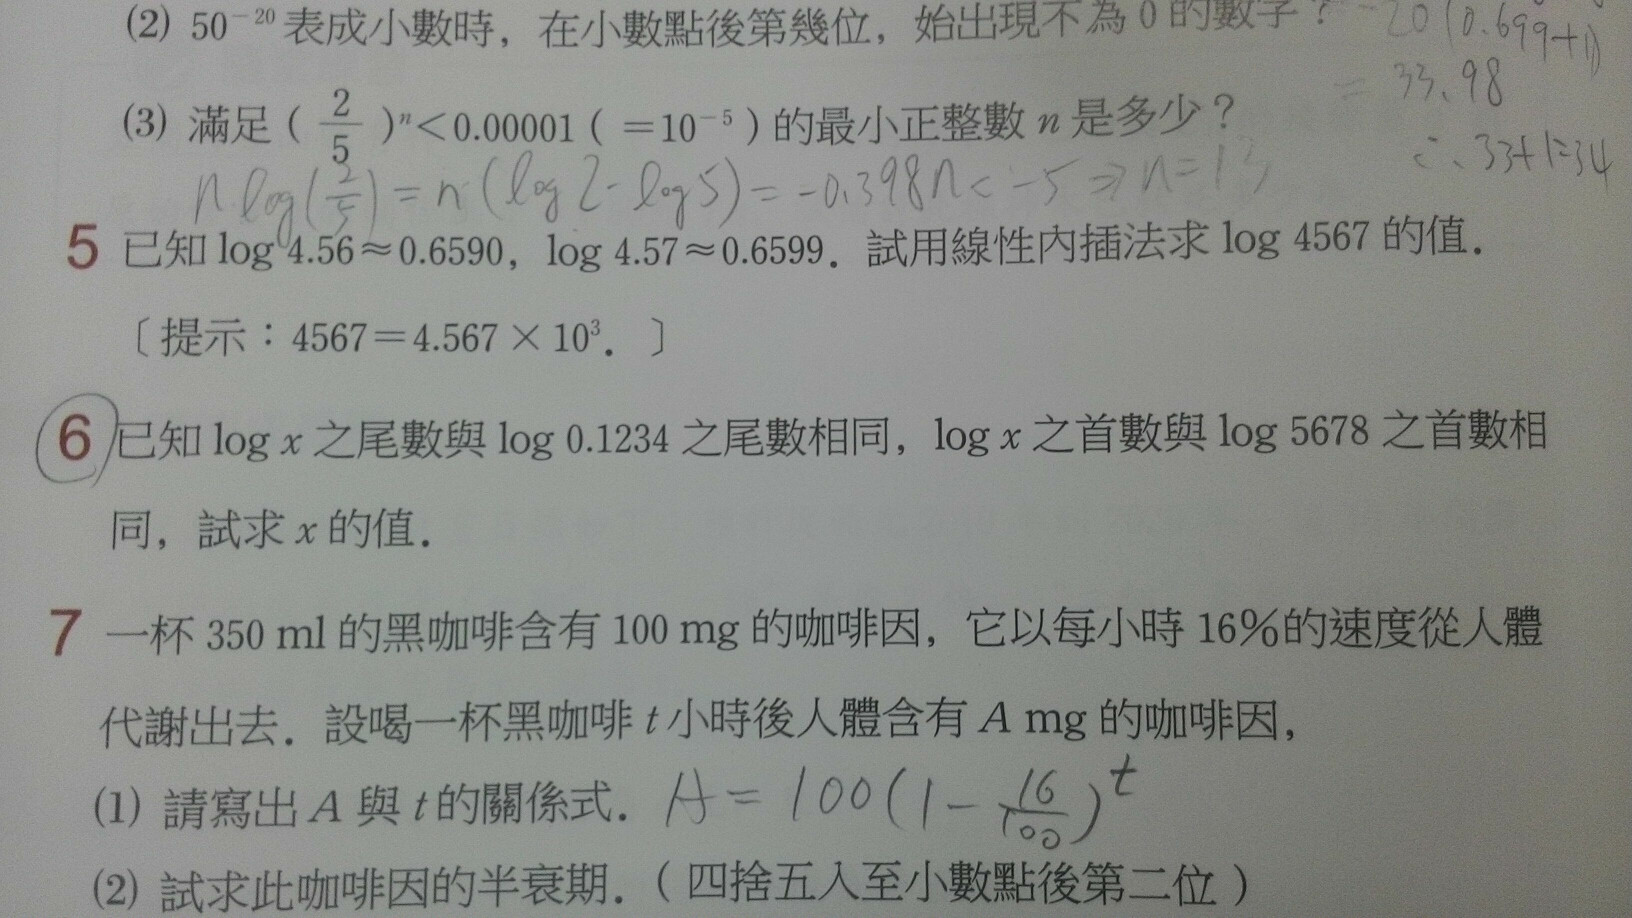 (2) 50⁻²⁰ 表成小數時，在小數點後第幾位，始出現不為 0 的數字？
-20(0.699+1)
= 33.98
∴ 33+1=34
(3) 滿足 ( 2/5 )ⁿ<0.00001 ( =10⁻⁵ ) 的最小正整數 n 是多少？
n log(2/5) = n (log2 - log5) = -0.398n < -5 ⇒ n=13
5 已知 log 4.56≈0.6590，log 4.57≈0.6599．試用線性內插法求 log 4567 的值．
〔提示：4567=4.567 × 10³．〕
6 已知 log x 之尾數與 log 0.1234 之尾數相同，log x 之首數與 log 5678 之首數相
同，試求 x 的值．
7 一杯 350 ml 的黑咖啡含有 100 mg 的咖啡因，它以每小時 16%的速度從人體
代謝出去．設喝一杯黑咖啡 t 小時後人體含有 A mg 的咖啡因，
(1) 請寫出 A 與 t 的關係式． A = 100(1 - 16/100)ᵗ
(2) 試求此咖啡因的半衰期．( 四捨五入至小數點後第二位 )